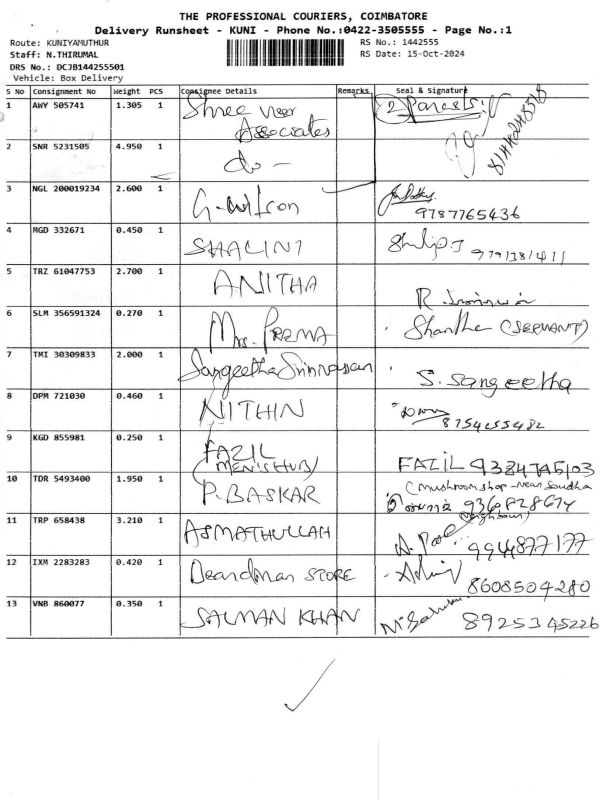 THE PROFESSIONAL COURIERS, COIMBATORE
Delivery Runsheet - KUNI - Phone No.:0422-3505555 - Page No.:1
Route: KUNIYAMUTHUR RS No.: 1442555
Staff: N.THIRUMAL RS Date: 15-Oct-2024
DRS No.: DCJB144255501
Vehicle: Box Delivery
S No Consignment No Weight PCS Consignee Details Remarks Seal & Signature
1 AWY 505741 1.305 1 Shree Veer Associates 2 Parcels
2 SNR 5231505 4.950 1 do -
3 NGL 200019234 2.600 1 G. Wilson 9787765436
4 MGD 332671 0.450 1 SHALINI
5 TRZ 61047753 2.700 1 ANITHA
6 SLM 356591324 0.270 1 Mrs. PREMA Shantha (SERVANT)
7 TMI 30309833 2.000 1 Sangeetha Srinivasan S. Sangeetha
8 DPM 721030 0.460 1 NITHIN 8754255482
9 KGD 855981 0.250 1 FAZIL (MEN'S HUB) FAZIL 9384745103
10 TDR 5493400 1.950 1 P. BASKAR (Mushroom shop - near 9360828674 (Neighbour)
11 TRP 658438 3.210 1 ASMATHULLAH 9944877177
12 IXM 2283283 0.420 1 STORE 8608504280
13 VNB 860077 0.350 1 SALMAN KHAN 8925345226